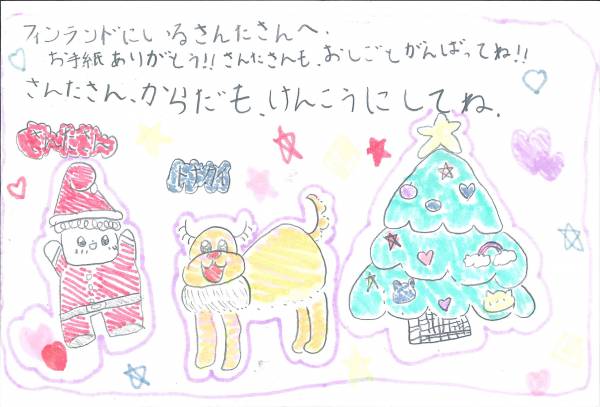 フィンランドにいるさんたさんへ.
お手紙ありがとう!! さんたさんも、おしごとがんばってね!!
さんたさん、からだも、けんこうにしてね.
さんたさん
トナカイ